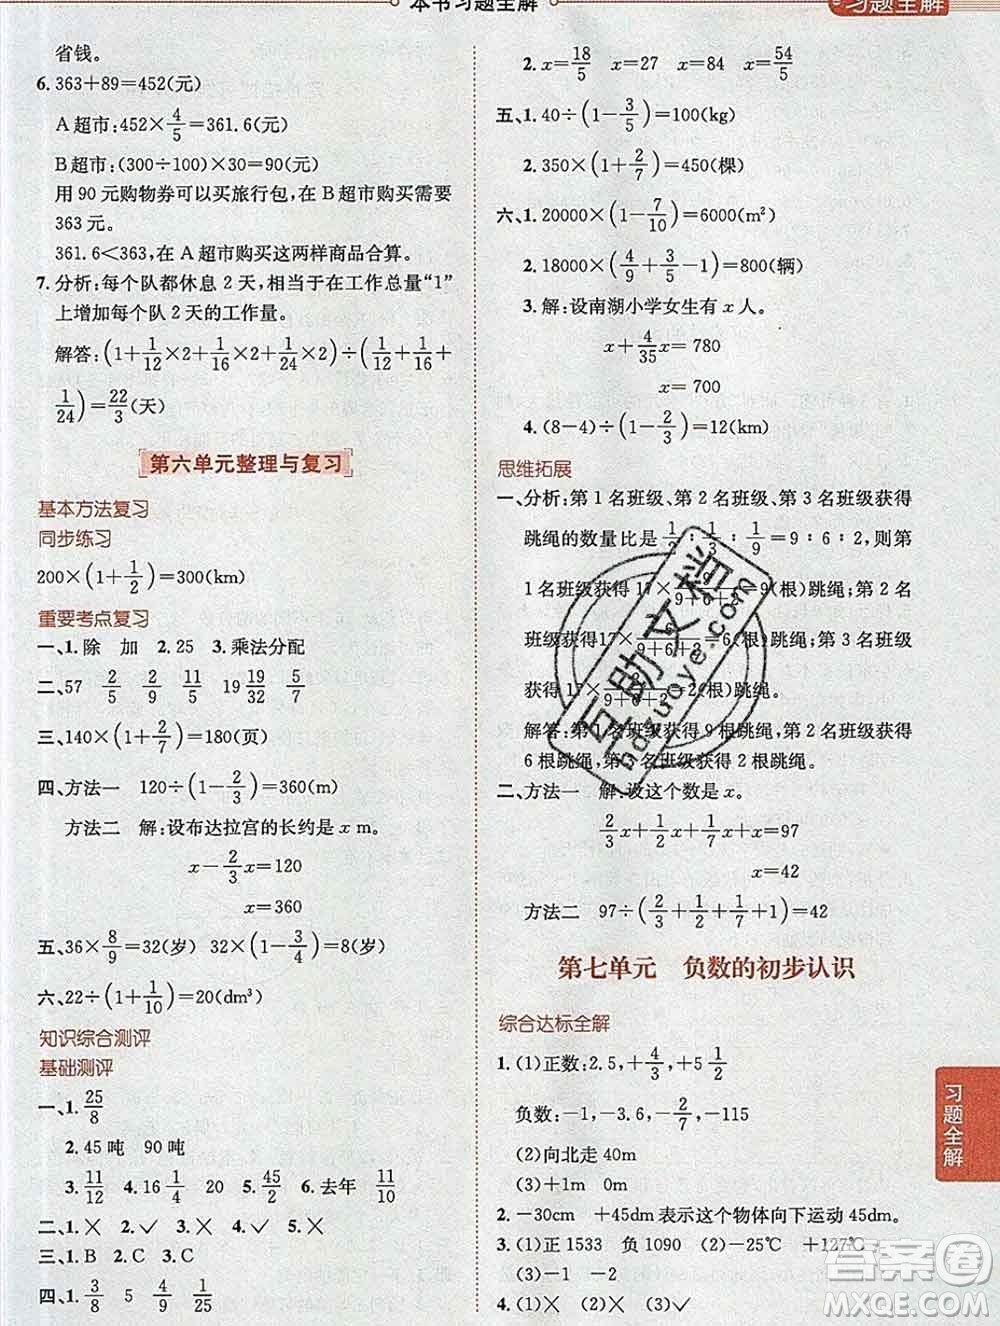 本书习题全解
习题全解
省钱。
6. 363+89=452(元)
A 超市:452×4/5=361.6(元)
B 超市:(300÷100)×30=90(元)
用 90 元购物券可以买旅行包,在 B 超市购买需要
363 元。
361.6<363,在 A 超市购买这两样商品合算。
7. 分析:每个队都休息 2 天,相当于在工作总量“1”
上增加每个队 2 天的工作量。
解答:(1+1/12×2+1/16×2+1/24×2)÷(1/12+1/16+
1/24)=22/3(天)
第六单元整理与复习
基本方法复习
同步练习
200×(1+1/2)=300(km)
重要考点复习
一、1. 除 加 2. 25 3. 乘法分配
二、57 2/5 2/9 11/5 19 19/32 5/7
三、140×(1+2/7)=180(页)
四、方法一 120÷(1-2/3)=360(m)
方法二 解:设布达拉宫的长约是 x m。
x-2/3x=120
x=360
五、36×8/9=32(岁) 32×(1-3/4)=8(岁)
六、22÷(1+1/10)=20(dm³)
知识综合测评
基础测评
一、1. 25/8
2. 45 吨 90 吨
3. 11/12 4. 16 1/4 20 5. 45/2 6. 去年 11/10
二、1. ✕ 2. ✓ 3. ✕ 4. ✓ 5. ✕
三、1. B 2. C 3. C 4. B
四、1. 3/8 5 4/9 1/25
2. x=18/5 x=27 x=84 x=54/5
五、1. 40÷(1-3/5)=100(kg)
2. 350×(1+2/7)=450(棵)
六、1. 20000×(1-7/10)=6000(m²)
2. 18000×(4/9+3/5-1)=800(辆)
3. 解:设南湖小学女生有 x 人。
x+4/35x=780
x=700
4. (8-4)÷(1-2/3)=12(km)
思维拓展
一、分析:第 1 名班级、第 2 名班级、第 3 名班级获得
跳绳的数量比是 1/2:1/3:1/9=9:6:2,则第
1 名班级获得 17×9/9+6+2=9(根)跳绳;第 2 名
班级获得17×6/9+6+2=6(根)跳绳;第 3 名班级
获得 17×2/9+6+2=2(根)跳绳。
解答:第 1 名班级获得 9 根跳绳,第 2 名班级获得
6 根跳绳,第 3 名班级获得 2 根跳绳。
二、方法一 解:设这个数是 x。
2/3x+1/2x+1/7x+x=97
x=42
方法二 97÷(2/3+1/2+1/7+1)=42
第七单元 负数的初步认识
综合达标全解
1. (1)正数:2.5,+4/3,+5 1/2
负数:-1,-3.6,-2/7,-115
(2)向北走 40m
(3)+1m 0m
2. -30cm +45dm 表示这个物体向下运动 45dm。
3. (1)正 1533 负 1090 (2)-25℃ +127℃
(3)-1 -2
4. (1)✕ (2)✕ (3)✓
习题全解
互助文档
hdzuoye.com
答案圈
MXQE.COM